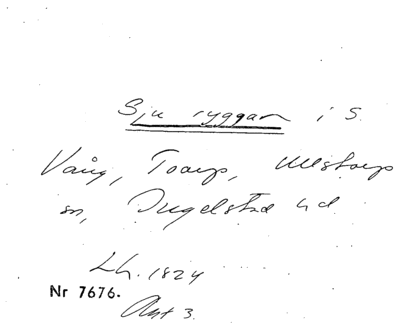 Sju ryggar i S.
Vång, Toarp, Ullstorps
sn, Ingelstad hd
Lh. 1824
Nr 7676.
Akt 3.